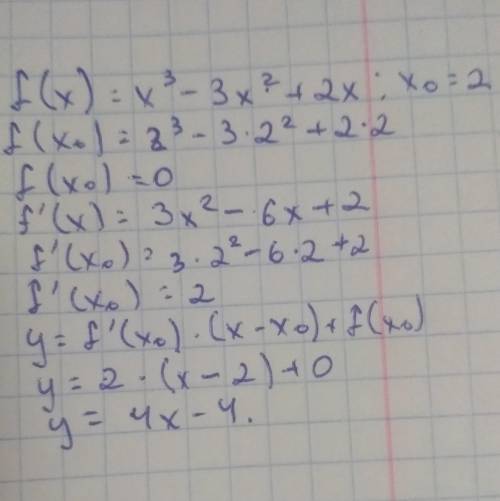 f(x) = x³ - 3x² + 2x; x₀ = 2
f(x₀) = 2³ - 3·2² + 2·2
f(x₀) = 0
f'(x) = 3x² - 6x + 2
f'(x₀) = 3·2² - 6·2 + 2
f'(x₀) = 2
y = f'(x₀)·(x - x₀) + f(x₀)
y = 2·(x - 2) + 0
y = 4x - 4.